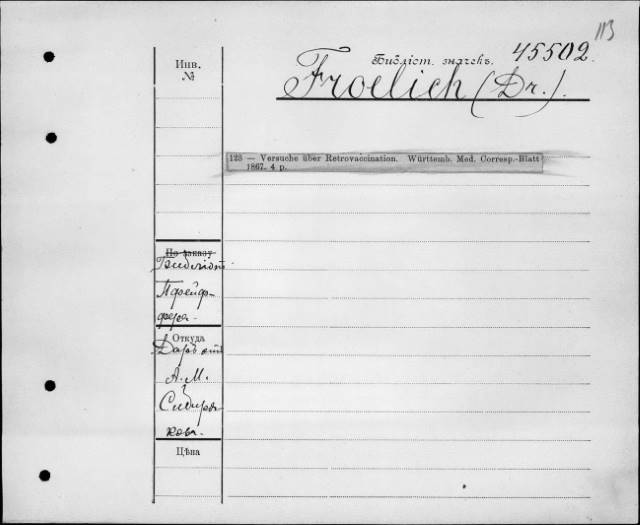 113
Инв. №
Библіот. значекъ. 45502.
Froelich (Dr.).
123 — Versuche über Retrovaccination. Württemb. Med. Corresp.-Blatt
1867. 4 p.
По заказу
Библіот.
Пфейф-
фера.
Откуда
Даръ отъ
А. М.
Сибиря-
кова.
Цѣна